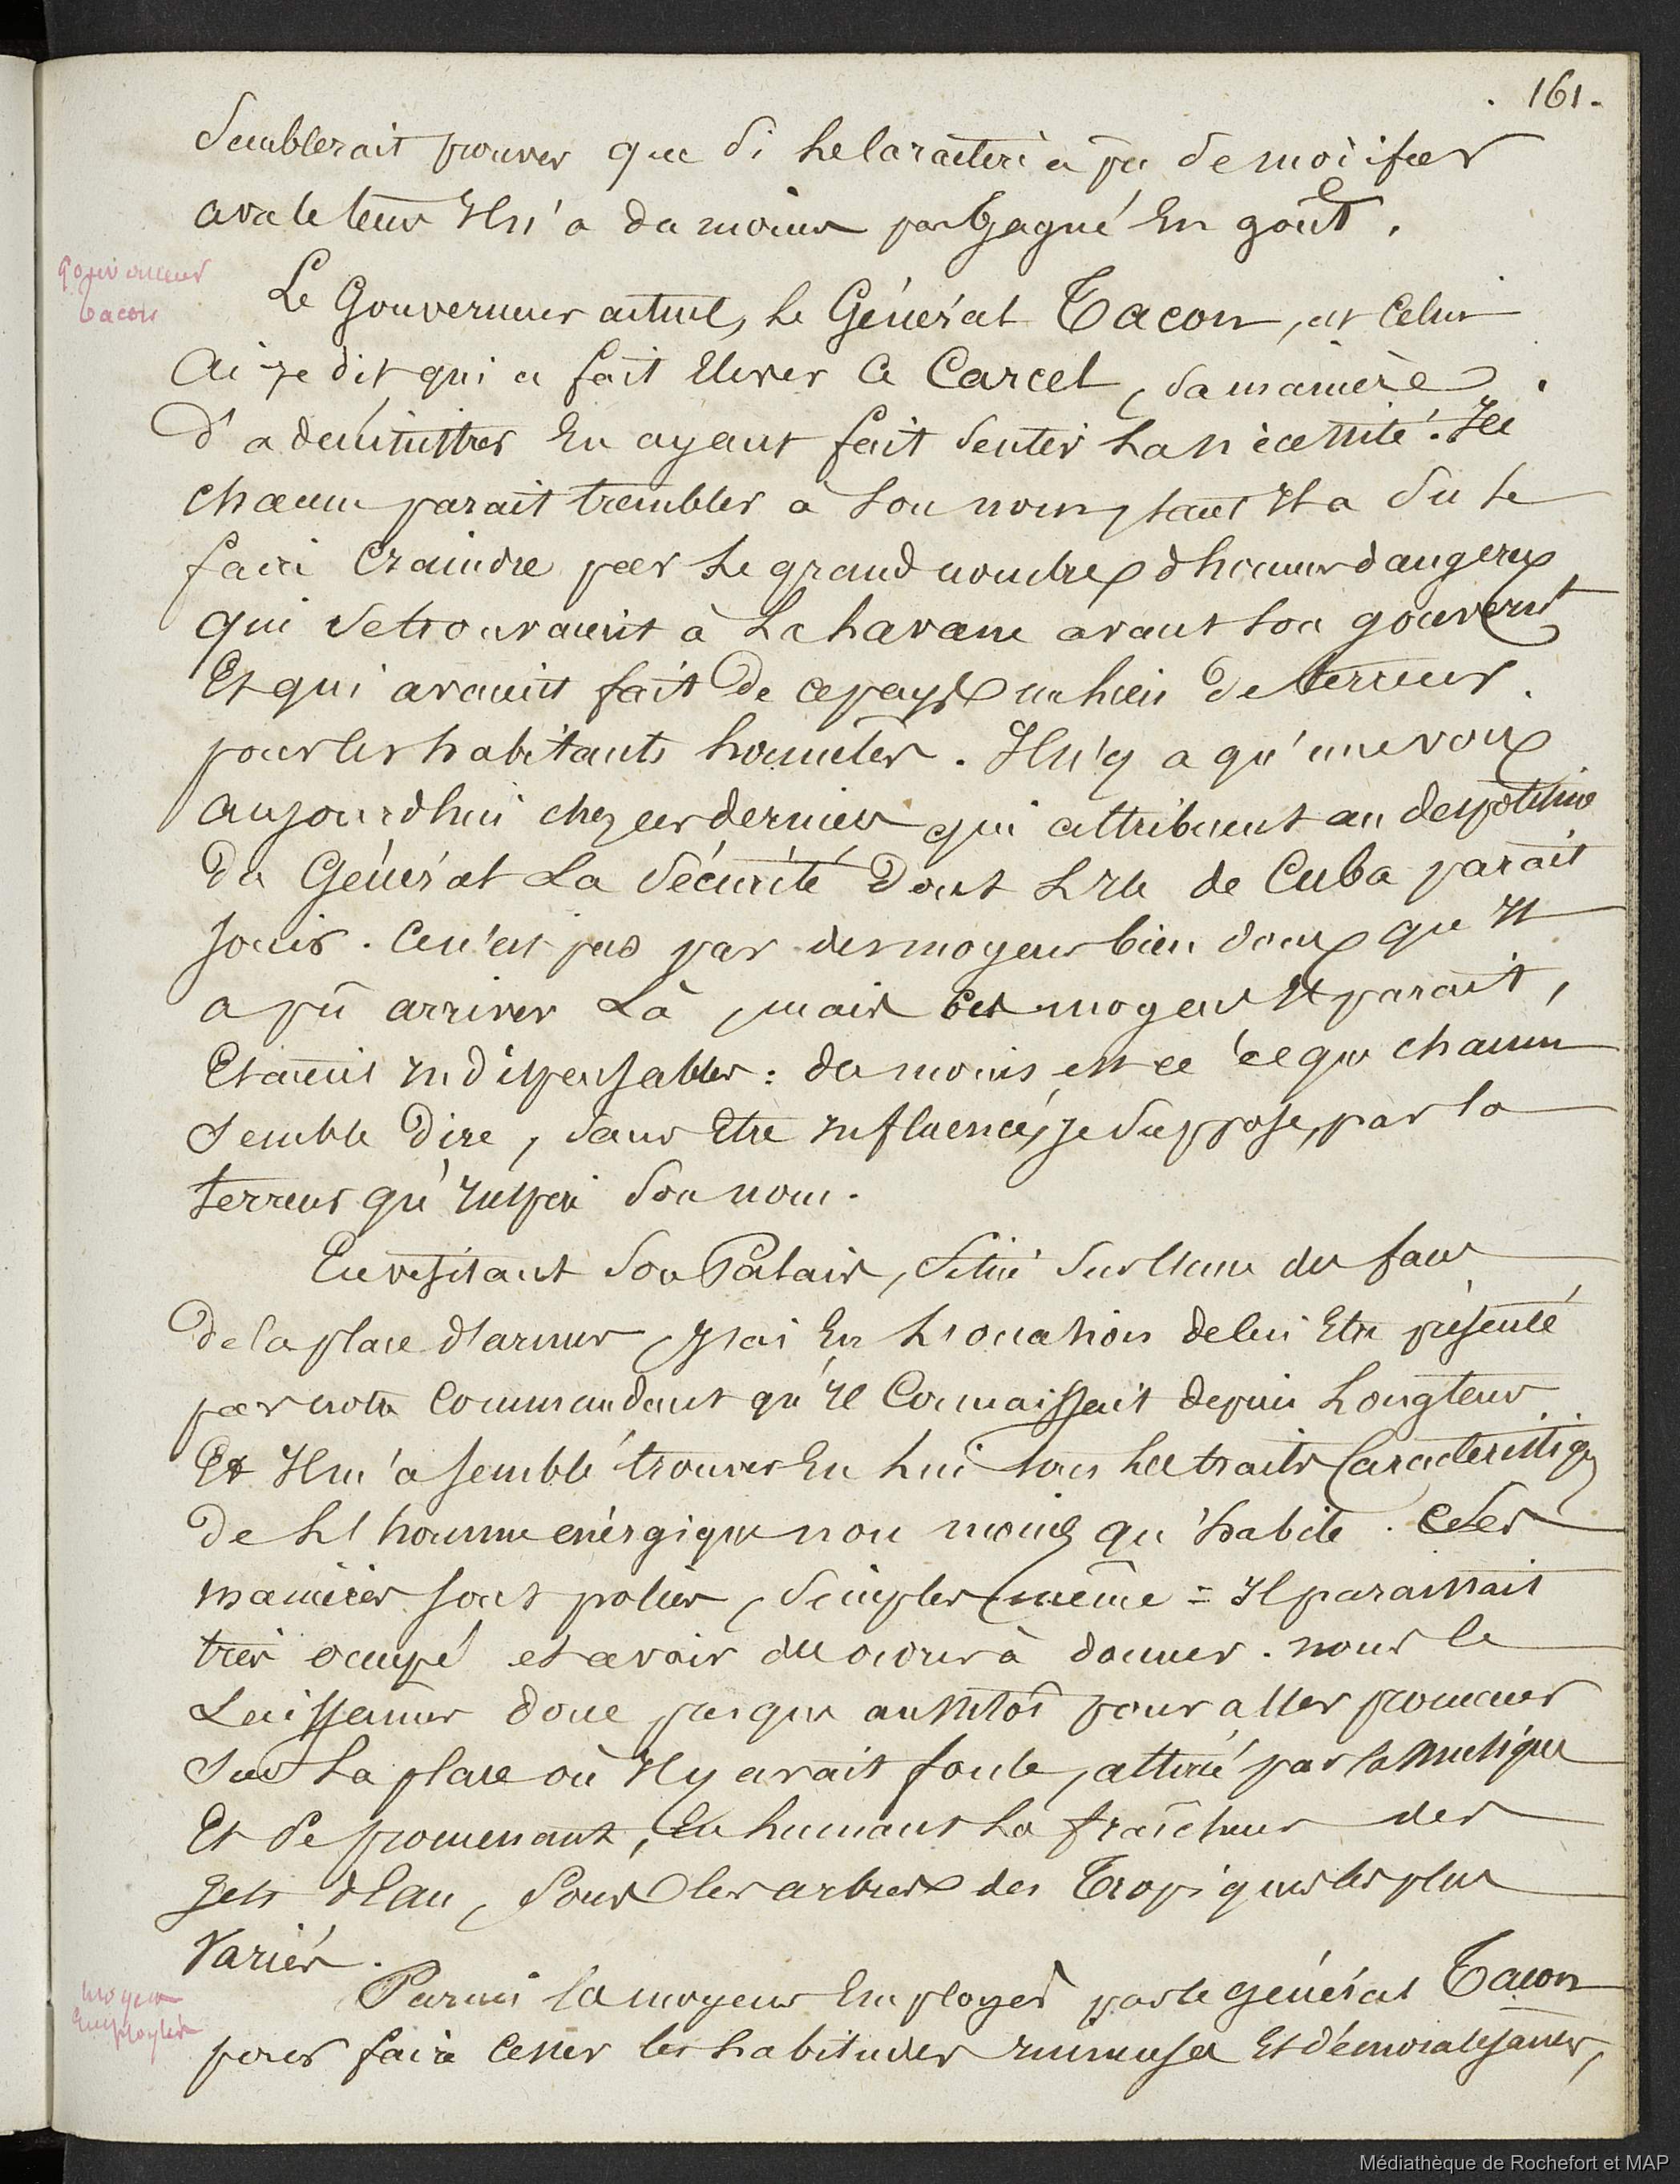 . 161.
Semblerait prouver que si le caractère a pu se modifier
avec le tems Il n'a du moins pas Gagné En goût.
gouverneur
tacon
Le Gouverneur actuel, le Général Tacon, est Celui
Ai-je dit, qui a fait Elever la Carcel, sa manière
d'administrer En ayant fait Sentir La nécessité. Ici
chacun parait trembler à Son nom, tant Il a su se
faire Craindre par Le grand nombre d'hommes dangereux
qui se trouvaient à La havane avant son gouvernt
Et qui avaient fait De ce pays un lieu de terreur
pour les habitants honnêtes. Il n'y a qu'une voix
aujourd'hui chez ces derniers qui attribuent au despotisme
Du Général La Sécurité Dont L'Ile de Cuba parait
jouir. Ce n'est pas par des moyens bien doux qu'Il
a pû arriver Là, mais ces moyens Il parait,
Etaient Indispensables : du moins est ce ce que chacun
Semble Dire, sans Etre Influencé, je Suppose, par la
terreur qu'Inspire Son nom.
En visitant Son Palais, Situé Sur l'une des faces
De la place d'armes, J'ai Eu L'occasion de lui Etre présenté
par notre Commandant qu'Il Connaissait depuis Longtems
Et Il m'a semblé trouver En Lui tous Les traits Caractéristiqs
De L'homme énergique non moins qu'habile. Ses
manières sont polies, Simples même = Il paraissait
très occupé et avoir des ordres à donner. nous le
Laissames donc presque aussitôt pour aller promener
Sur La place où Il y avait foule, attirée par la Musique
Et Se promenant, En humant La fraîcheur des
Jets d'Eau, Sous les arbres des Tropiques les plus
Variés.
moyens
Employés
Parmi les moyens Employés par le général Tacon
pour faire Cesser les habitudes ruineuses Et démoralisantes,
Médiathèque de Rochefort et MAP